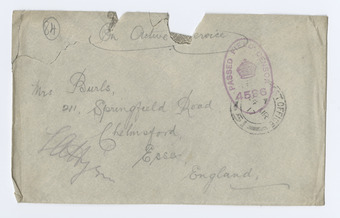 On Active Service
PASSED
4596
Mrs Burls,
211, Springfield Road
Chelmsford
Essex
England,